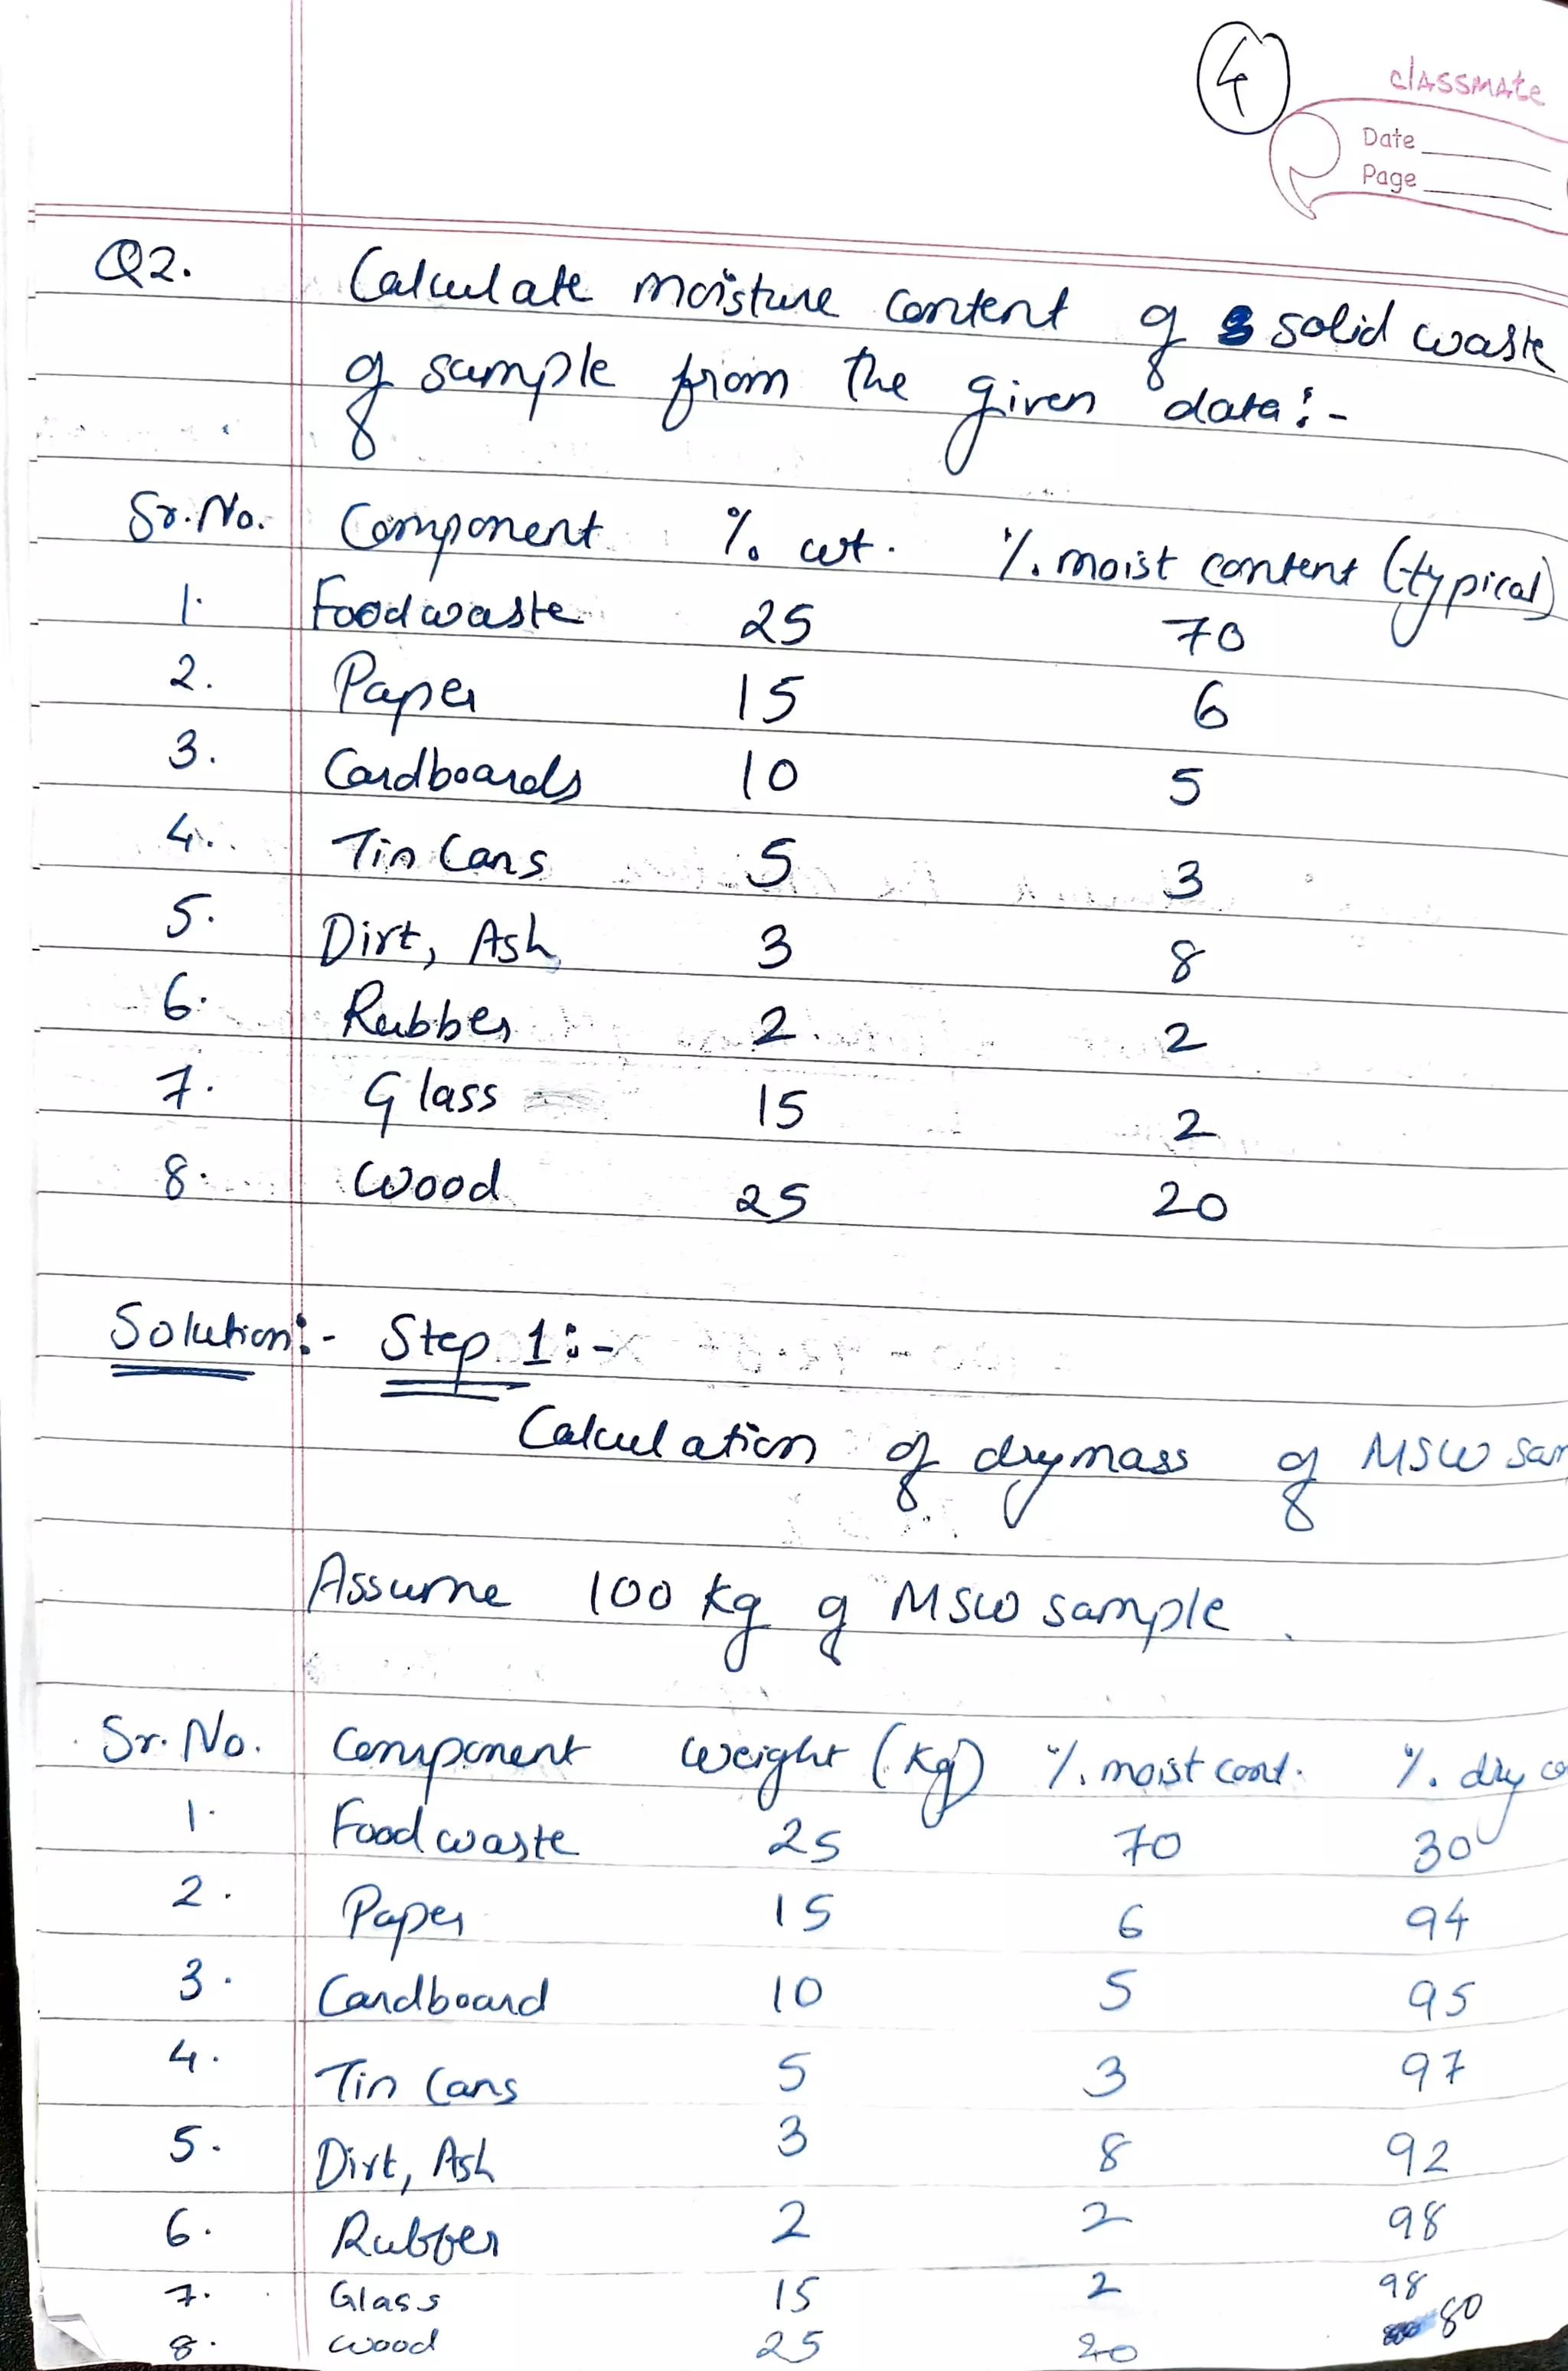 4
classmate
Date
Page
Q2. Calculate moisture content of solid waste
of sample from the given data:-
Sr. No. Component % wt. % moist content (typical)
1. Food waste 25 70
2. Paper 15 6
3. Cardboards 10 5
4. Tin Cans 5 3
5. Dirt, Ash 3 8
6. Rubber 2 2
7. Glass 15 2
8. Wood 25 20
Solution:- Step 1:-
Calculation of dry mass of MSW sam
Assume 100 kg of MSW sample.
Sr. No. Component Weight (kg) % moist cont. % dry co
1. Food waste 25 70 30
2. Paper 15 6 94
3. Cardboard 10 5 95
4. Tin Cans 5 3 97
5. Dirt, Ash 3 8 92
6. Rubber 2 2 98
7. Glass 15 2 98
8. Wood 25 20 80